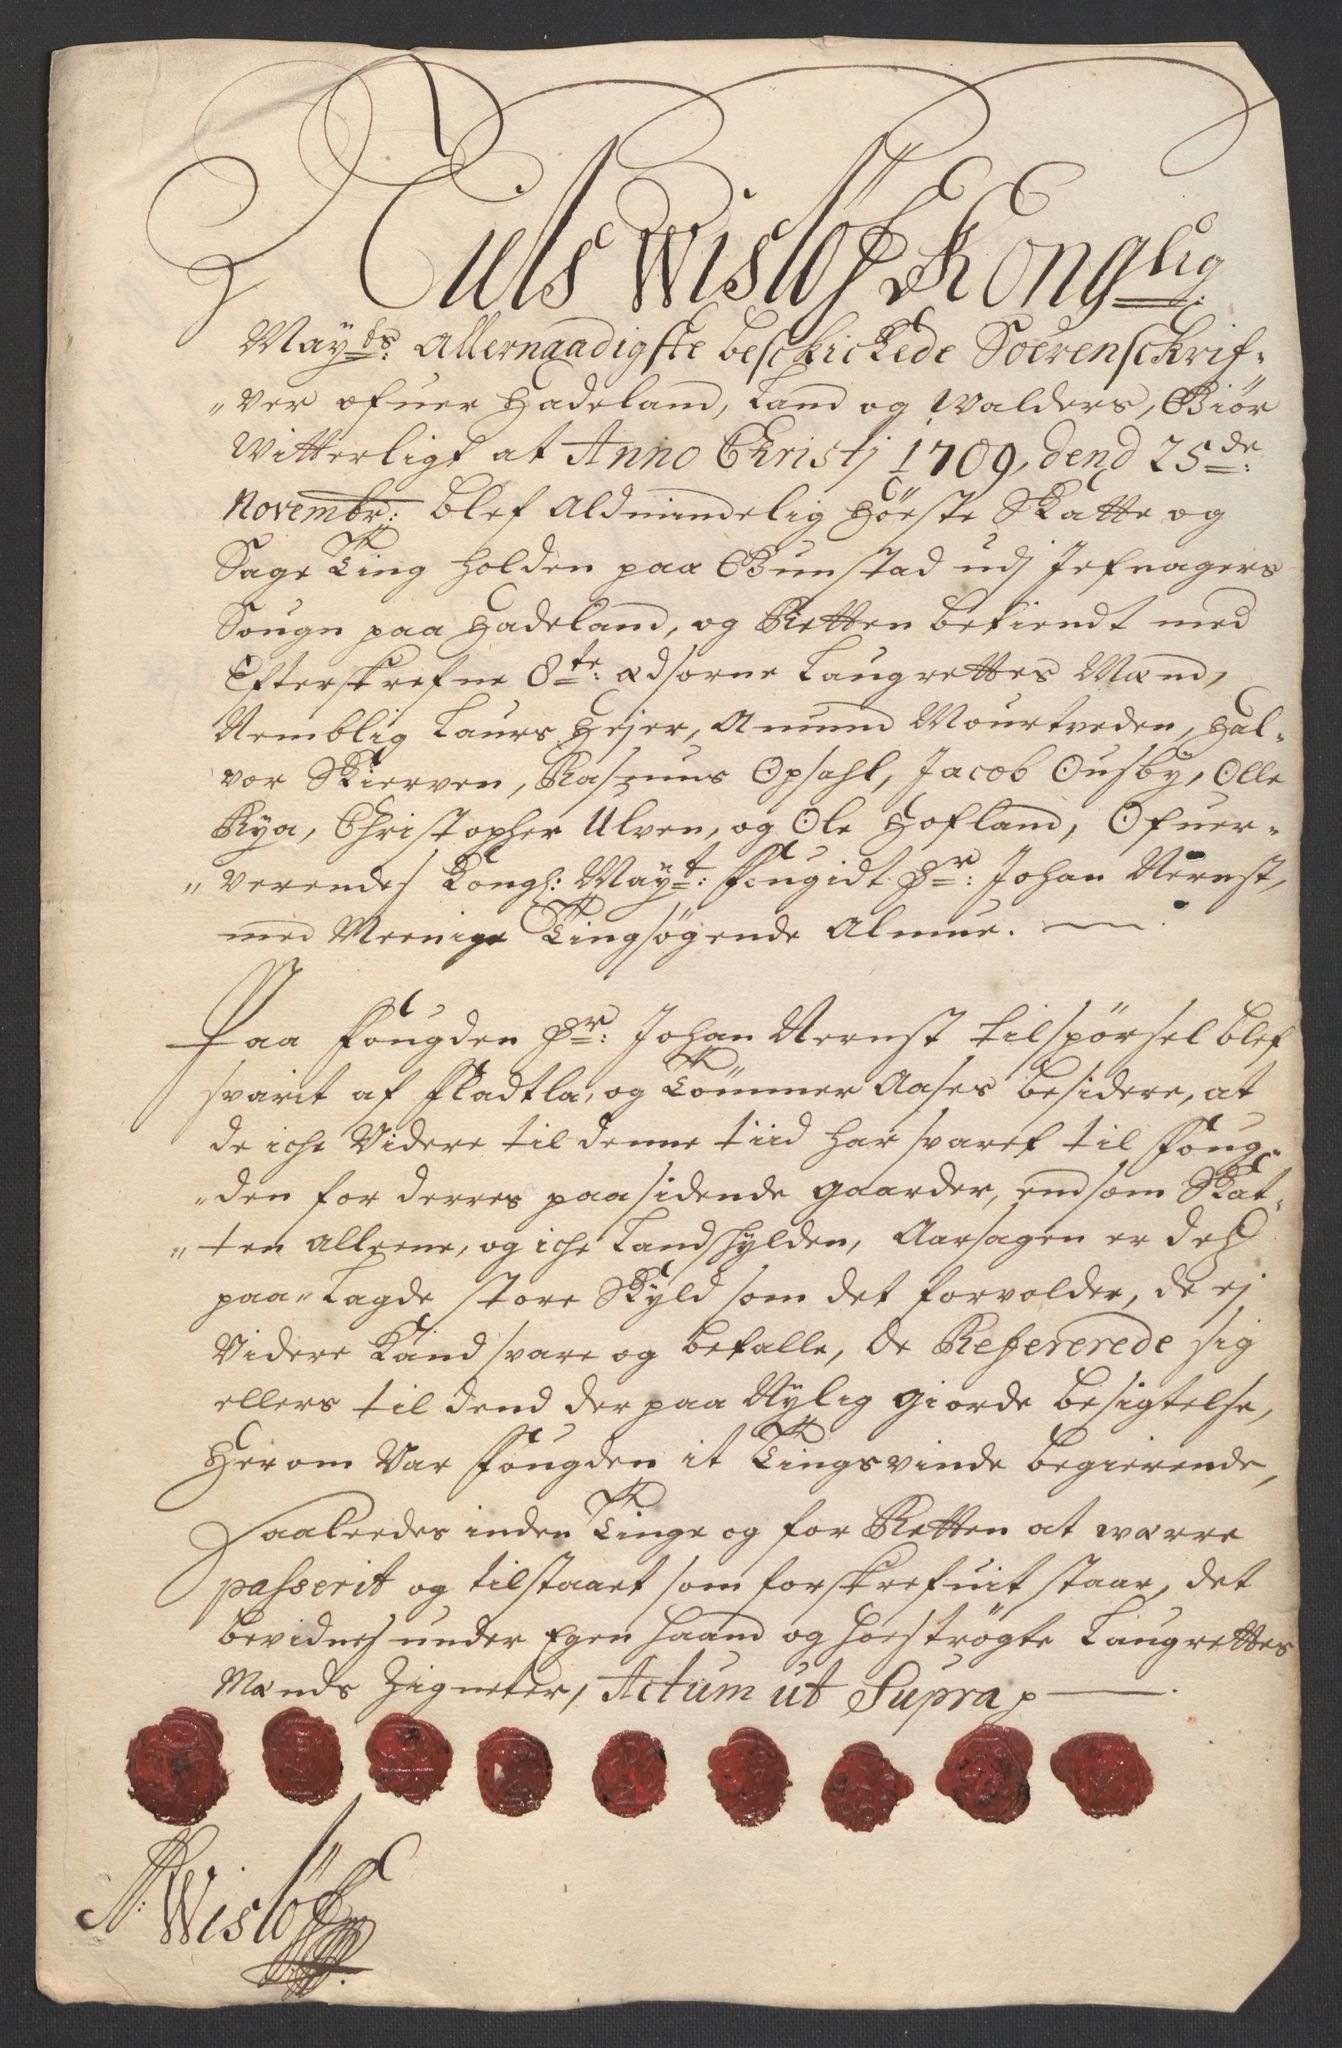 Niels Wisløff Konglig
Mayds: Allernaadigste beschickede Soerenschrif-
"ver ofuer Hadeland, Land og Walders, Giør
Witterligt at Anno Christj 1709, dend 25de:
Novembr: blef Aldmindelig Høste Skatte og
Sage Ting holden paa Bunstad udj Jefnagers
Sougn paa Hadeland, og Retten bekiendt med
Efterskrefne 8te:Ædsorne Laugrettes Mænd,
Nemblig Laurs Hejer, Amund Mourtveden, Hal-
vor Skierven, Rasmus Opsahl, Jacob Ousby, Olle
Rya, Christopher Ulven, og Ole Hofland, Ofuer-
"verendes Kongl: Mayt: Fougidt Hr: Johan Nernst,
med Meenige Tingsøgende Almue. —
Paa Fougden Hr: Johan Nernst tilspørsel blef
svarit af Fladtla, og Tømmer Aases besidere, at
de iche Videre til denne tiid har svaret til Foug-
"den for derres paasidende gaarder, end som Skat-
"ten alleene, og iche Landskylden, Aarsagen er deß
paa-Lagde store Skyld som det forvolder, de ej
Videre Kand svare og betalle, de Refererede sig
ellers til dend der paa Nylig giorde besigtelse,
Herom Var Fougden it Tingsvinde begierende,
Saaleedes inden Tinge og for Retten at værre
passerit og tilstaaet som forskrefuit staar, det
bevidnes under Egen haand og hoestrøgte Laugrettes
Mænds Zigneter, Actum ut Supra
N: Wisløff